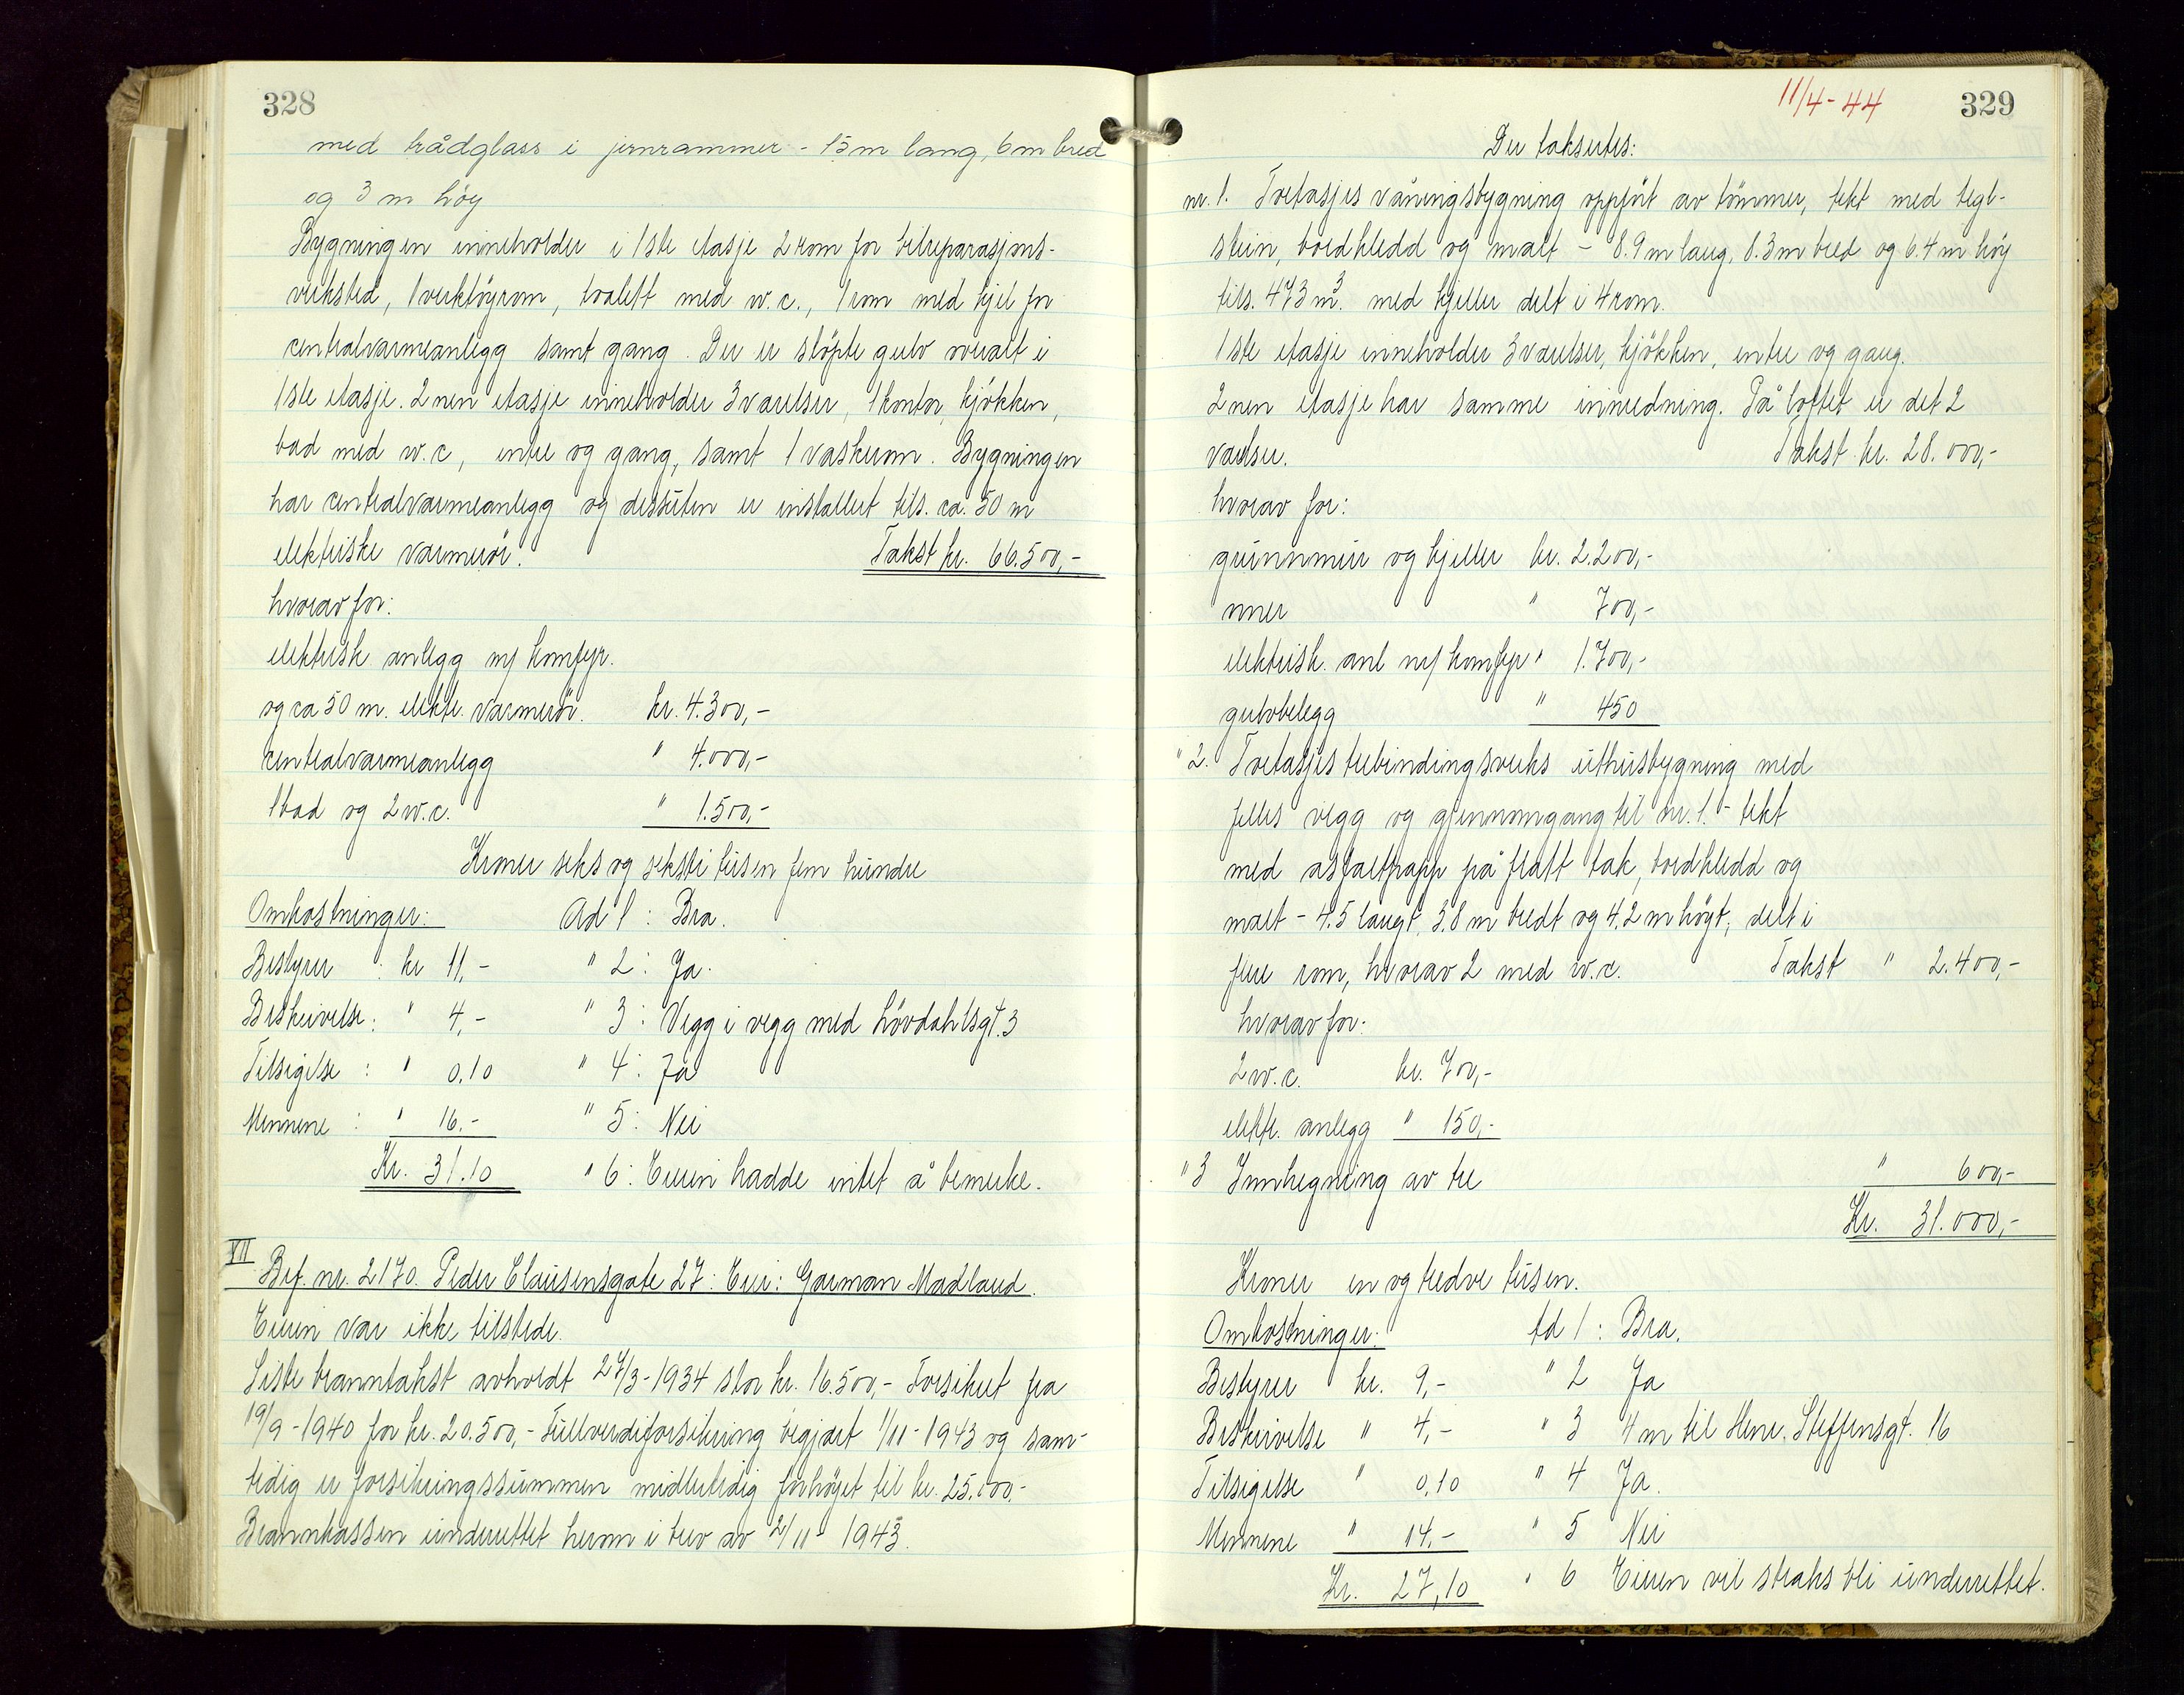 328
med trådglass i jernrammer - 15 m lang, 6 m bred
og 3 m höy
Bygningen inneholder i 1ste etasje 2 rom for bilreparasjons-
verksted, 1 verktöyrom, toalett med w.c., 1 rom med kjel for
centralvarmeanlegg samt gang. Der er stöpte gulv overalt i
1ste etasje. 2nen etasje inneholder 3 værelser, 1 kontor, kjökken,
bad med w.c, entre og gang, samt 1 vaskerom. Bygningen
har centralvarmeanlegg og dessuten er installert tils. ca. 50 m
elektriske varmerör. Takst kr. 66.500,-
hvorav for:
elektrisk anlegg m/ komfyr.
og ca 50 m. elektr. varmerör. kr. 4.300,-
centralvarmeanlegg " 4.000,-
1 bad og 2 w.c. " 1.500,-
Kroner seks og seksti tusen fem hundre
Omkostninger: Ad 1: Bra.
Bestyrer : kr 11,- " 2: Ja.
Beskrivelse: " 4,- " 3: Vegg i vegg med Lövdahlsgt. 3
Tilsigelse : " 0.10 " 4: Ja
Mennene : " 16.- " 5: Nei
Kr. 31.10 " 6: Eieren hadde intet å bemerke.
VII Brf. nr. 2170. Peder Clausensgate 27: Eier: Garman Madland.
Eieren var ikke tilstede.
Siste branntakst avholdt 27/3-1934 stor kr. 16.500,- Forsikret fra
19/9-1940 for kr. 20.500,- Fullverdiforsikring begjært 1/11-1943 og sam-
tidig er forsikringssummen midlertidig forhöyet til kr. 25.000.-
Brannkassen underrettet herom i brev av 2/11-1943.
11/4-44 329
Der takseres:
nr. 1. Toetasjes våningsbygning oppfört av tömmer, tekt med tegl-
stein, bordkledd og malt - 8.9 m lang, 8.3 m bred og 6.4 m höy
tils. 473 m³. med kjeller delt i 4 rom.
1ste etasje inneholder 3 værelser, kjökken, entre og gang.
2nen etasje har samme innredning. På loftet er det 2
værelser. Takst kr. 28.000,-
hvorav for:
grunnmur og kjeller kr. 2.200,-
ovner " 700,-
elektrisk. anl m/ komfyr " 1.700,-
gulvbelegg " 450
" 2. Toetasjes trebindingsverks uthusbygning med
felles vegg og gjennomgang til nr. 1. - tekt
med asfaltpapp på flatt tak, bordkledd og
malt - 4.5 langt, 3.8 m bredt og 4.2 m höyt, delt i
fire rom, hvorav 2 med w.c. Takst " 2.400,-
hvorav for:
2 w.c. kr. 700,-
elektr. anlegg " 150,-
" 3 Innhegning av tre " 600,-
Kr. 31.000,-
Kroner en og tredve tusen.
Omkostninger: td 1: Bra.
Bestyrer kr. 9,- " 2 Ja
Beskrivelse " 4,- " 3 4 m til Henr. Steffensgt. 16
Tilsigelse " 0,10 " 4 Ja.
Mennene " 14,- " 5 Nei
Kr. 27,10 " 6 Eieren vil straks bli underrettet.